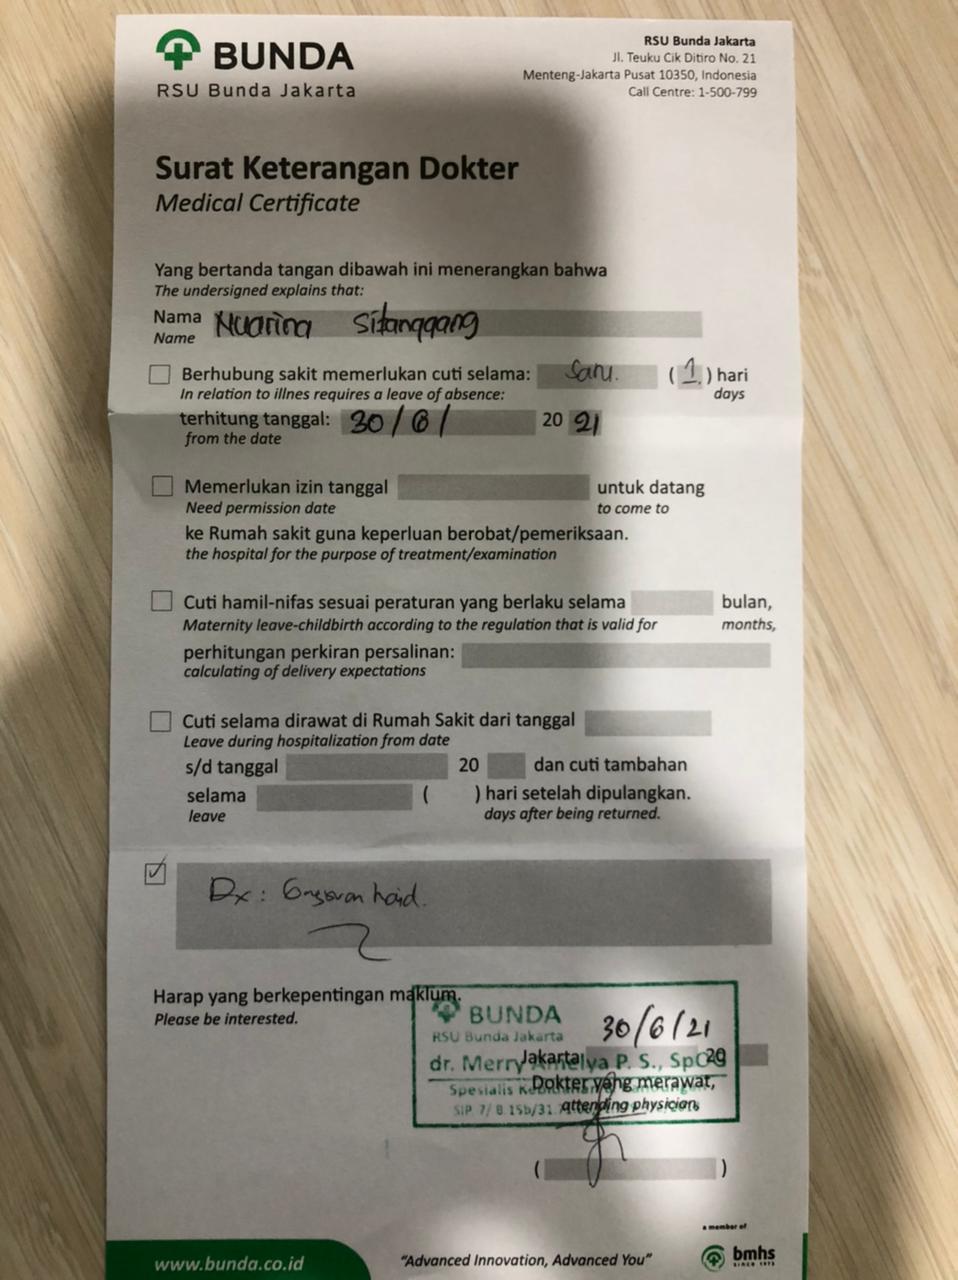 BUNDA
RSU Bunda Jakarta
RSU Bunda Jakarta
Jl. Teuku Cik Ditiro No. 21
Menteng-Jakarta Pusat 10350, Indonesia
Call Centre: 1-500-799
Surat Keterangan Dokter
Medical Certificate
Yang bertanda tangan dibawah ini menerangkan bahwa
The undersigned explains that:
Nama Nuarina Sitanggang
Name
Berhubung sakit memerlukan cuti selama: Satu. (1.) hari
In relation to illnes requires a leave of absence: days
terhitung tanggal: 30/6/ 20 21
from the date
Memerlukan izin tanggal untuk datang
Need permission date to come to
ke Rumah sakit guna keperluan berobat/pemeriksaan.
the hospital for the purpose of treatment/examination
Cuti hamil-nifas sesuai peraturan yang berlaku selama bulan,
Maternity leave-childbirth according to the regulation that is valid for months,
perhitungan perkiran persalinan:
calculating of delivery expectations
Cuti selama dirawat di Rumah Sakit dari tanggal
Leave during hospitalization from date
s/d tanggal 20 dan cuti tambahan
selama ( ) hari setelah dipulangkan.
leave days after being returned.
Dx: haid.
Harap yang berkepentingan maklum.
Please be interested.
BUNDA
RSU Bunda Jakarta
30/6/21
Jakarta 20
dr. Merry Amelya P. S., SpOG
Dokter yang merawat,
Spesialis
attending physician,
SIP 7/ B 15b/31.
( )
a member of
bmhs
SINCE 1973
www.bunda.co.id
"Advanced Innovation, Advanced You"